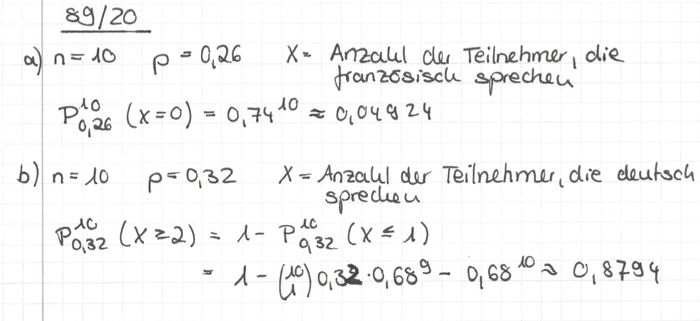 89/20
a) n = 10 p = 0,26 X = Anzahl der Teilnehmer, die
französisch sprechen
P¹⁰₀,₂₆ (X=0) = 0,74¹⁰ ≈ 0,04924
b) n = 10 p = 0,32 X = Anzahl der Teilnehmer, die deutsch
sprechen
P¹⁰₀,₃₂ (X≥2) = 1 - P¹⁰₀,₃₂ (X ≤ 1)
= 1 - (¹⁰₁) 0,32 · 0,68⁹ - 0,68¹⁰ ≈ 0,8794